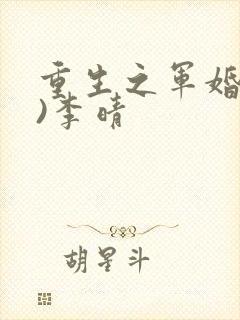 重生之军婚
)李晴
胡星斗